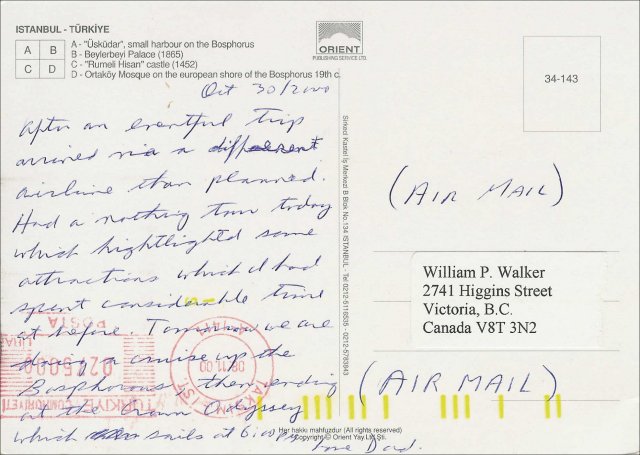 ISTANBUL - TÜRKİYE
A B
C D
A - "Üsküdar", small harbour on the Bosphorus
B - Beylerbeyi Palace (1865)
C - "Rumeli Hisarı" castle (1452)
D - Ortaköy Mosque on the european shore of the Bosphorus 19th c.
ORIENT
PUBLISHING SERVICE LTD.
34-143
Oct 30/2000
After an eventful trip
arrived via a different
airline than planned.
Had a nothing tour today
which hightlighted some
attractions which I had
spent considerable time
at before. Tomorrow we are
doing a cruise up the
Bosphorous, then ending
at the Crown Odyssey
which sails at 6:00 PM
Love Dad.
Sirkeci Kastel İş Merkezi B Blok No.134 ISTANBUL - Tel 0212-5116535 - 0212-5783843
(AIR MAIL)
William P. Walker
2741 Higgins Street
Victoria, B.C.
Canada V8T 3N2
(AIR MAIL)
POSTA
0225000
TÜRKİYE CUMHURİYETİ
08.11.00
Her hakkı mahfuzdur (All rights reserved)
Copyright © Orient Yay. Ltd. Şti.